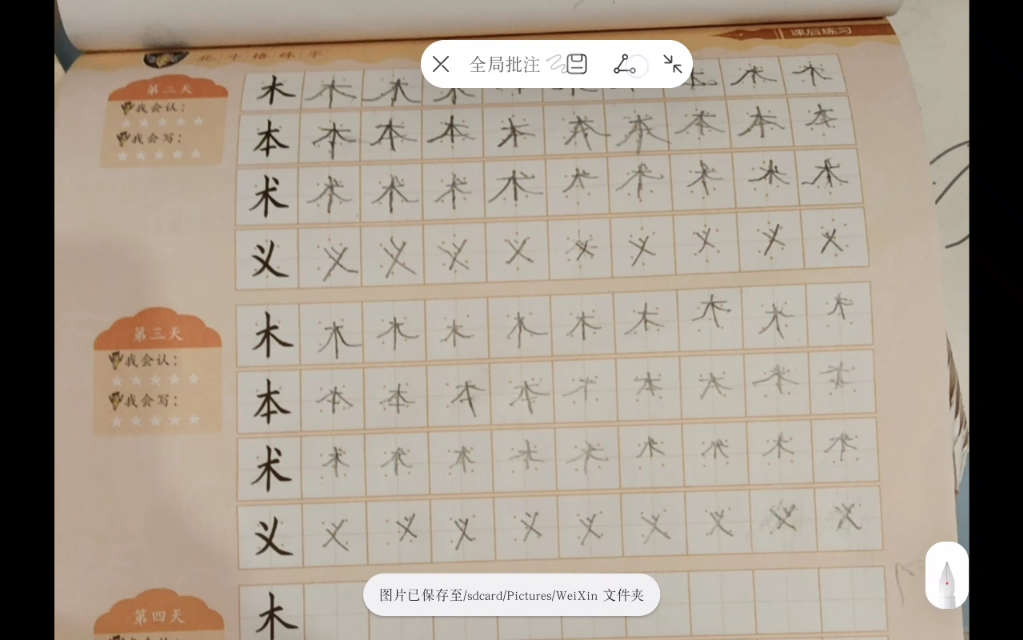 课后练习
全局批注
第二天
我会认：
我会写：
木 木 木 木 木 木 木 木 木 木
本 本 本 本 本 本 本 本 本 本
术 术 术 术 术 术 术 术 术 术
义 义 义 义 义 义 义 义 义 义
第三天
我会认：
我会写：
木 木 木 木 木 木 木 木 木 木
本 本 本 本 本 本 本 本 本 本
术 术 术 术 术 术 术 术 术 术
义 义 义 义 义 义 义 义 义 义
图片已保存至/sdcard/Pictures/WeiXin 文件夹
第四天
木